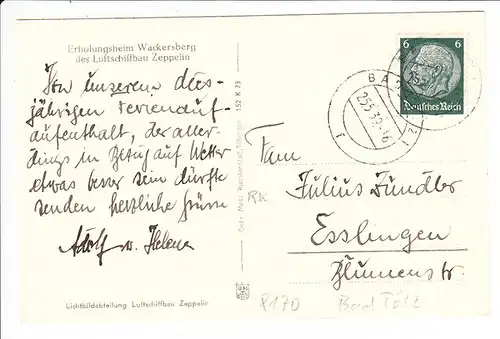 Erholungsheim Wackersberg
des Luftschiffbau Zeppelin
Von unserem dies-
jährigen Ferienauf-
aufenthalt, der aller-
dings in Bezug auf Wetter
etwas besser sein dürfte
senden herzliche Grüsse
Adolf u. Helene
Lichtbildabteilung Luftschiffbau Zeppelin
152 K 73
6 6
Deutsches Reich
BAD
25.5.39.-16
Fam
Julius Zündler
Esslingen
Blumenstr.
RK
8170 Bad Tölz